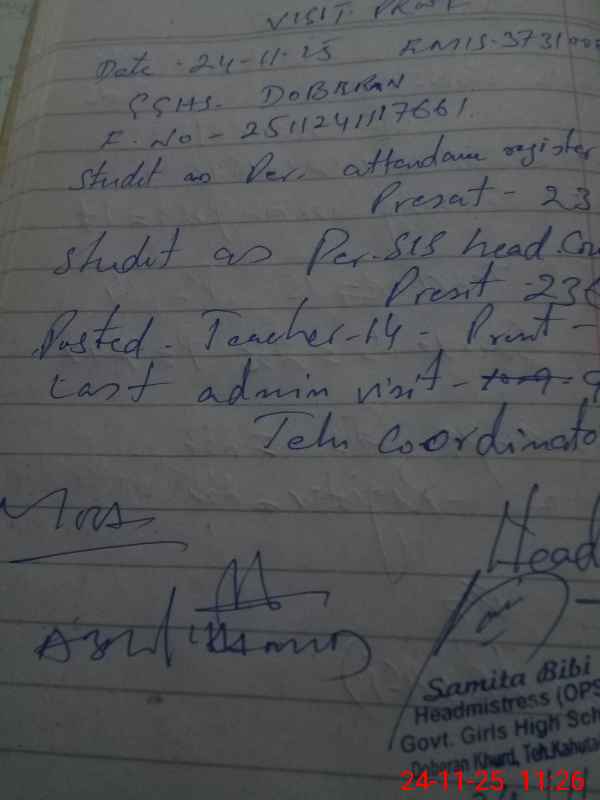 VISIT PROOF
Date - 24-11-25 EMIS-3731000
GGHS. DOBERAN
F. No - 2511241117661
Studet as Per. attendance register
Present - 23
Studet as Per. SIS head. Cou
Present - 236
Posted - Teacher - 14 - Present -
Last admin visit -
Teh Coordinato
Head
Samita Bibi
Headmistress (OPS
Govt. Girls High Sch
Doberan Khurd, Teh.Kahuta
24-11-25 11:26